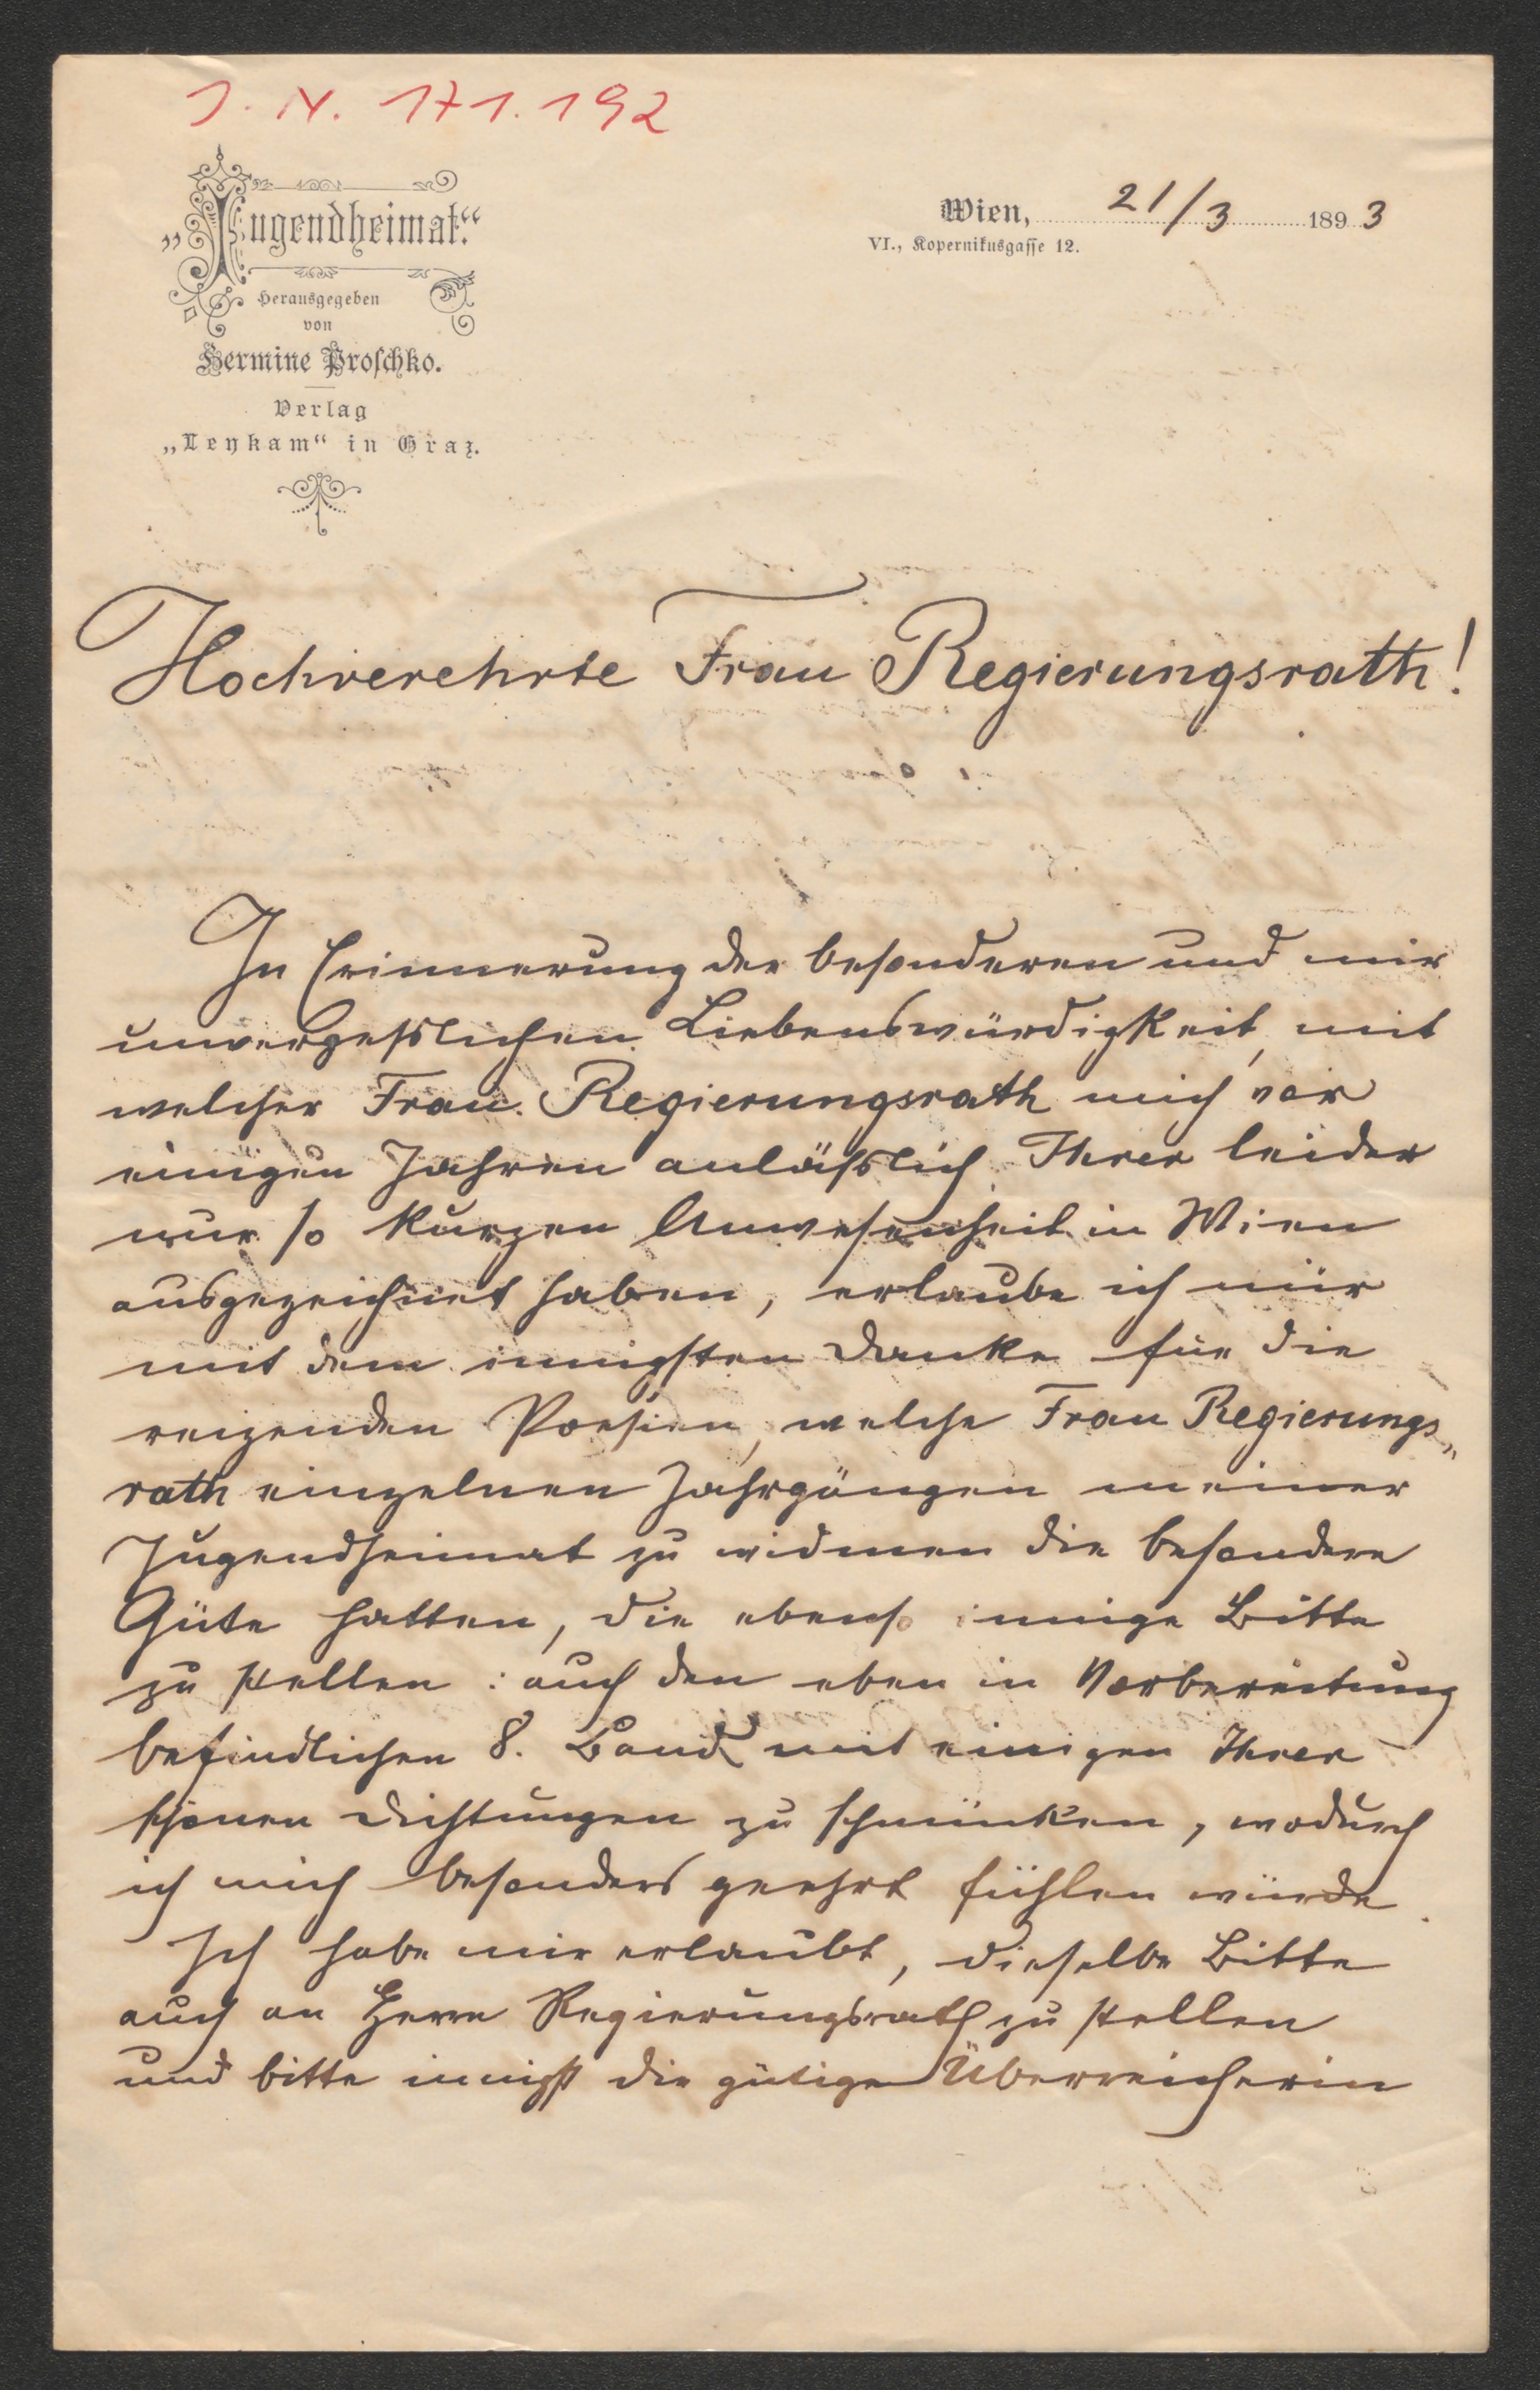 J. N. 171.192
„Jugendheimat.“
Herausgegeben
von
Hermine Proschko.
Verlag
„Leykam“ in Graz.
Wien, 21/3 1893
VI., Kopernikusgasse 12.
Hochverehrte Frau Regierungsrath!
In Erinnerung der besonderen und mir
unvergesslichen Liebenswürdigkeit, mit
welcher Frau Regierungsrath mich vor
einigen Jahren anlässlich Ihrer leider
nur so kurzen Anwesenheit in Wien
ausgezeichnet haben, erlaube ich mir
mit dem innigsten Danke für die
reizenden Poesien, welche Frau Regierungs„
rath einzelnen Jahrgängen meiner
Jugendheimat zu widmen die besondere
Güte hatten, die ebenso innige Bitte
zu stellen: auch den eben in Vorbereitung
befindlichen 8. Band mit einigen Ihrer
schönen Dichtungen zu schmücken, wodurch
ich mich besonders geehrt fühlen würde.
Ich habe mir erlaubt, dieselbe Bitte
auch an Herrn Regierungsrath zu stellen
und bitte innigst die gütige Überreicherin